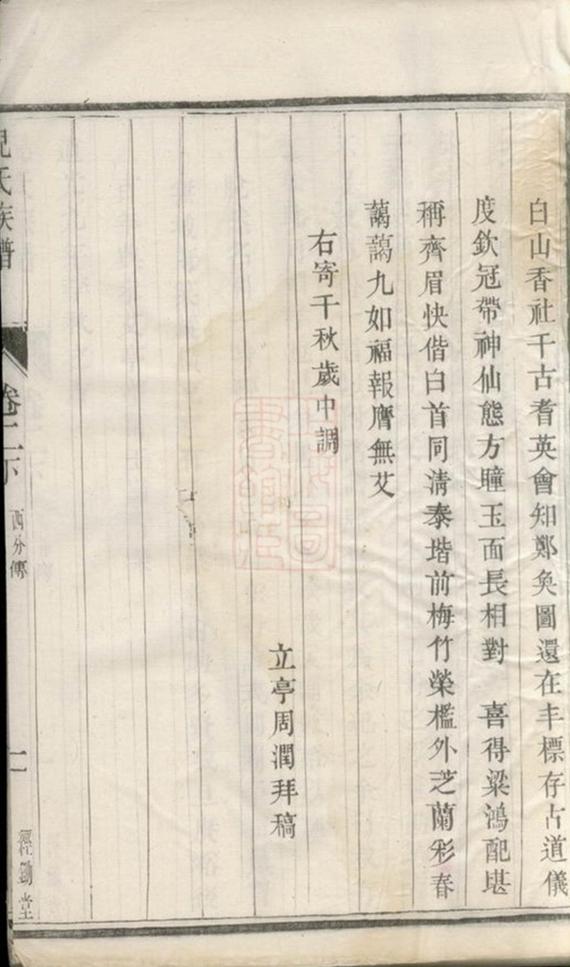 白山香社千古耆英會知鄭奐圖還在丰標存古道儀
度欽冠帶神仙態方瞳玉面長相對　喜得梁鴻配堪
稱齊眉快偕白首同清泰堦前梅竹榮檻外芝蘭彩春
藹藹九如福報膺無艾
右寄千秋歲中調
立亭周潤拜稿
氏族譜
卷二下
西分傳
一
經鋤堂